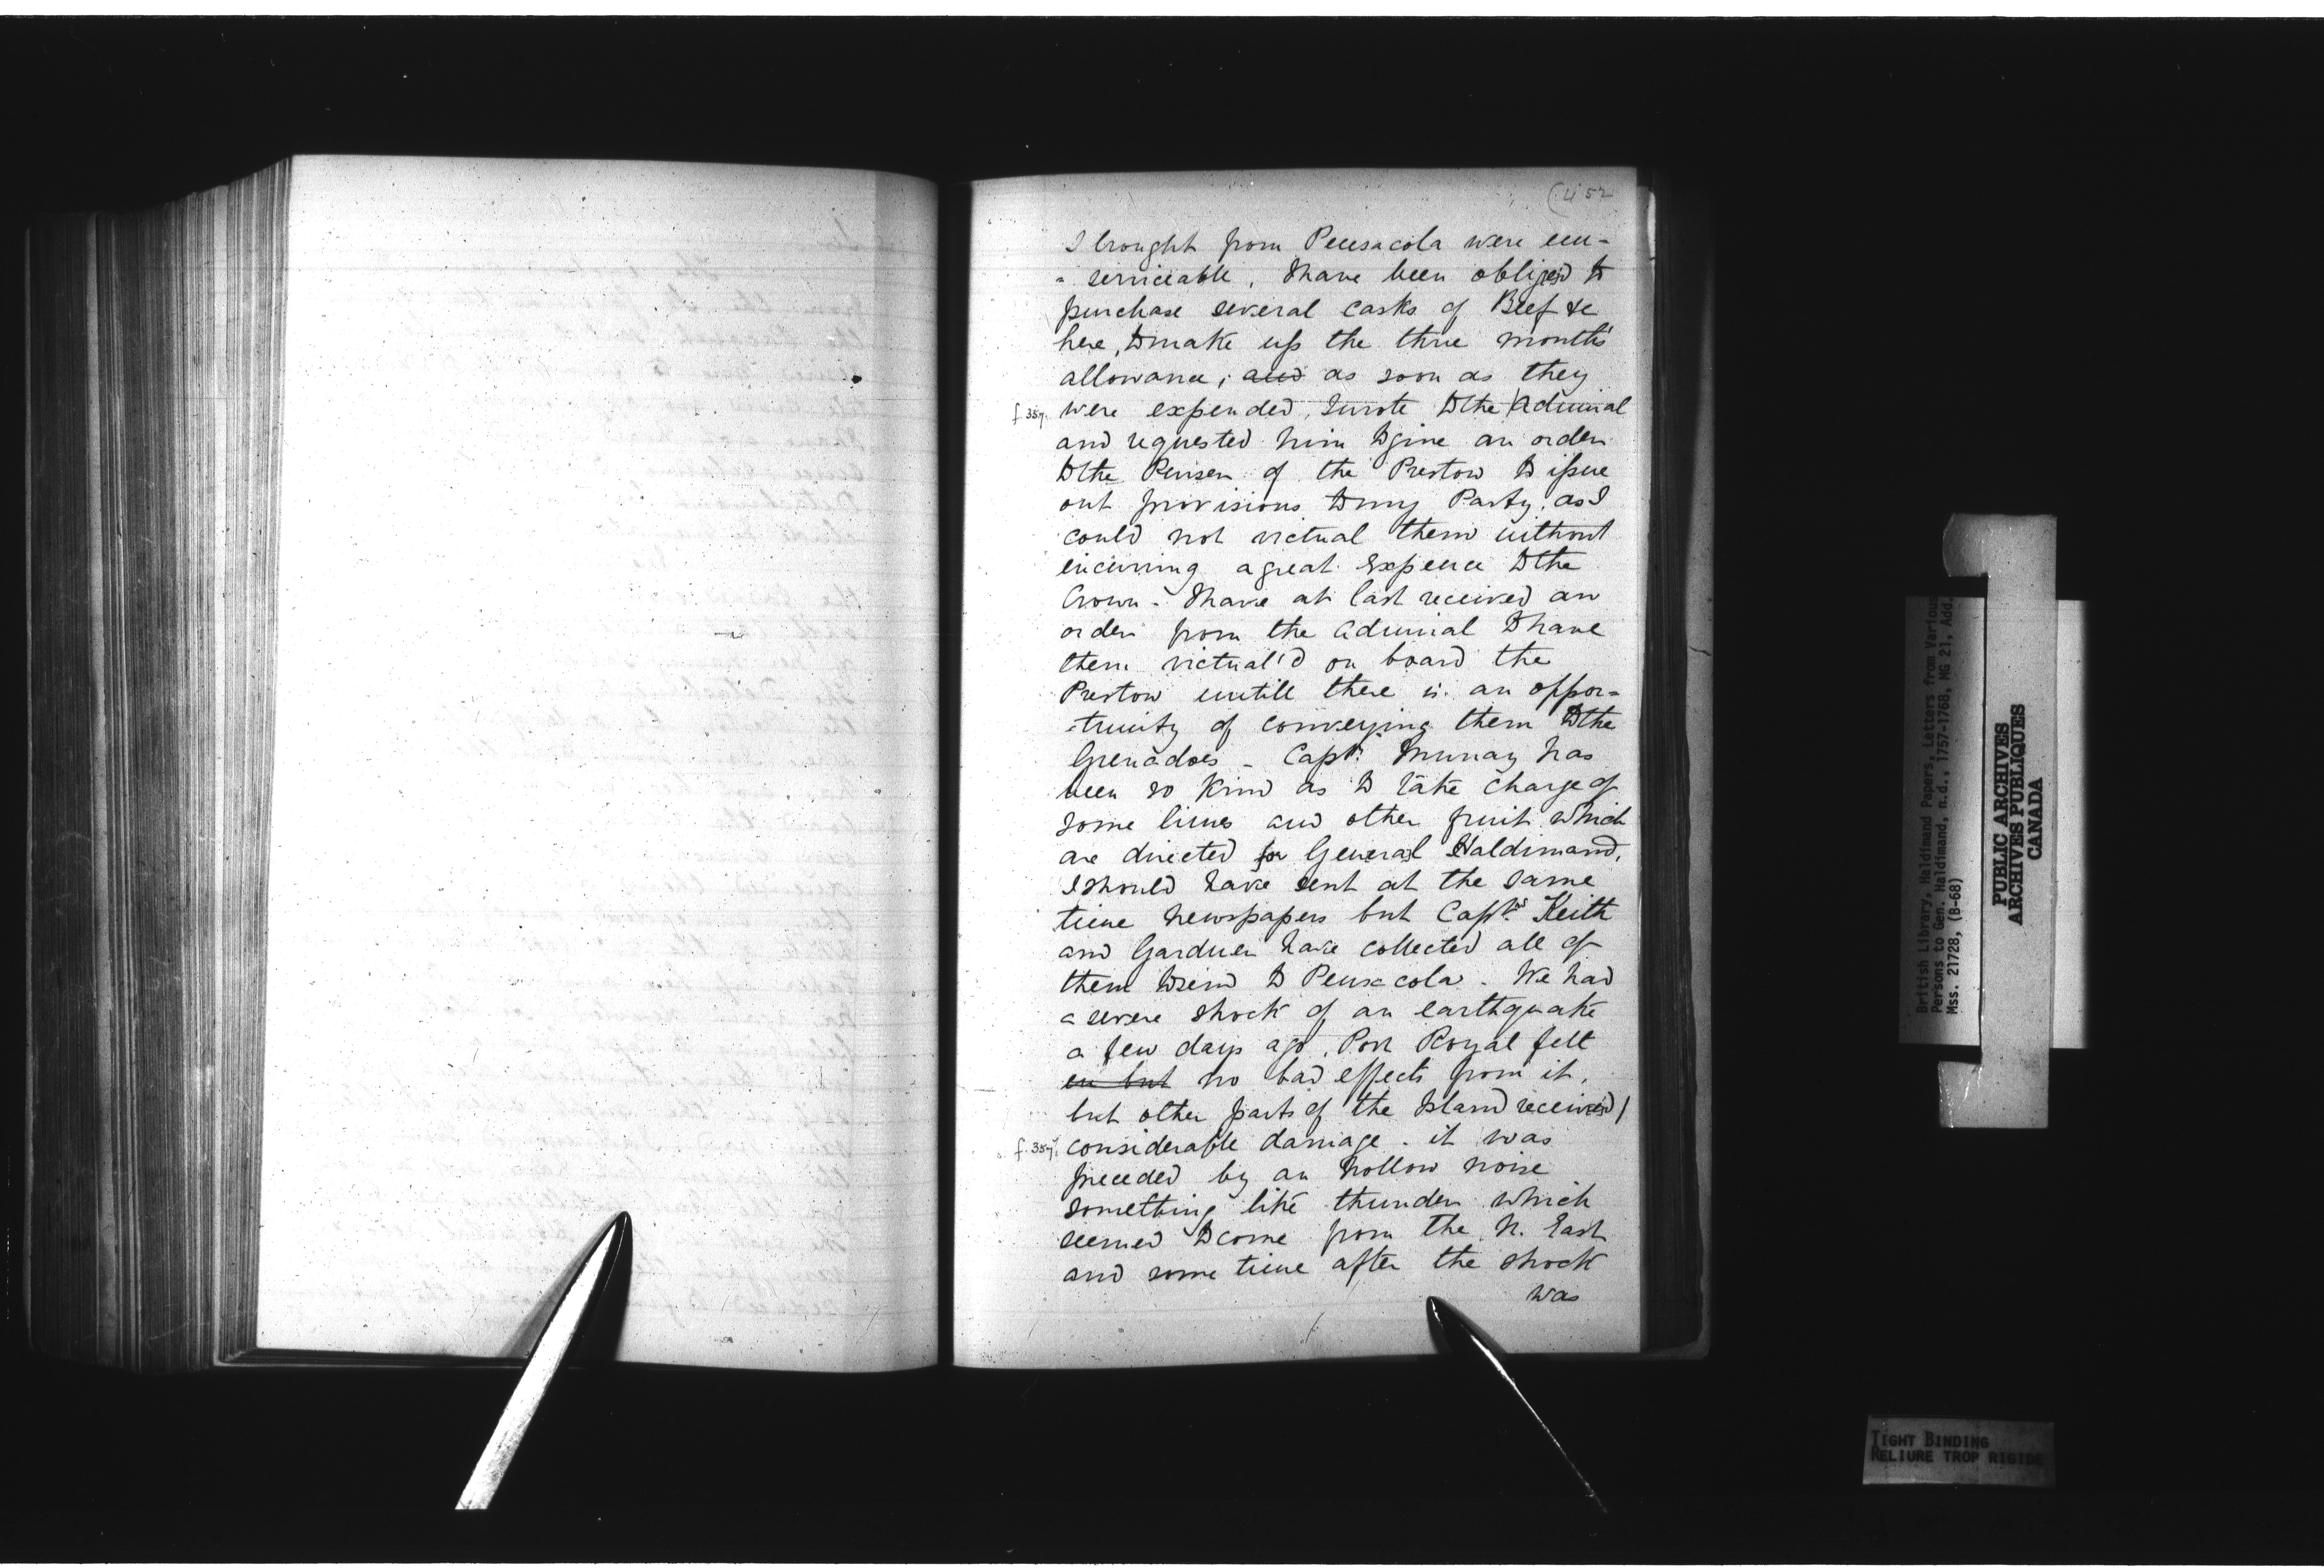 (452
I brought from Pensacola were un-
- serviceable. I have been obliged to
purchase several casks of Beef &c
here, to make up the three months'
allowance; and as soon as they
f. 357. were expended, I wrote to the Admiral
and requested him to give an order
to the Purser of the Preston to issue
out provisions to my Party, as I
could not victual them without
incurring a great Expence to the
Crown - I have at last received an
order from the Admiral to have
them victual'd on board the
Preston untill there is an oppor-
-tunity of conveying them to the
Grenadoes - Capt. Murray has
been so kind as to take charge of
some limes and other fruit which
are directed for General Haldimand.
I should have sent at the same
time newspapers but Capt.ns Keith
and Gardner have collected all of
them to send to Pensacola. We had
a severe shock of an earthquake
a few days ago, Port Royal felt
en but no bad effects from it,
but other parts of the Island received /
f. 357v. considerable damage. it was
preceded by an hollow noise
something like thunder which
seemed to come from the N. East
and some time after the shock
was
British Library, Haldimand Papers, Letters from Various
Persons to Gen. Haldimand, n.d., 1757-1768, MG 21, Add.
Mss. 21728, (B-68)
PUBLIC ARCHIVES
ARCHIVES PUBLIQUES
CANADA
TIGHT BINDING
RELIURE TROP RIGIDE